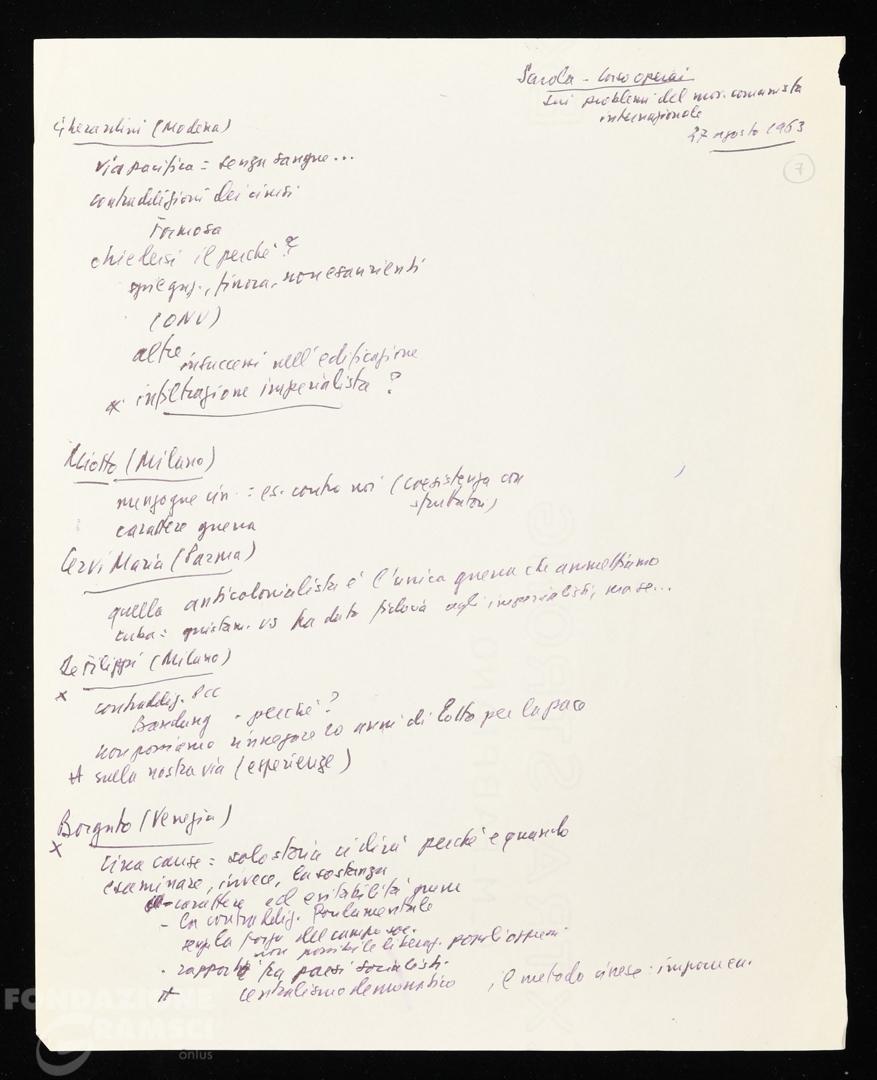 Scuola - Corso operai
sui problemi del mov. comunista
internazionale
27 agosto 1963
7
Gherardini (Modena)
via pacifica = senza sangue...
contraddizioni dei cinesi
Formosa
chiedersi il perché?
spiegaz., finora, non esaurienti
(ONU)
altre insuccessi nell'edificazione
x infiltrazione imperialista?
Miotto (Milano)
menzogne cin. = es. contro noi (coesistenza con
sfruttatori)
carattere guerra
Cervi Maria (Parma)
quella anticolonialista è l'unica guerra che ammettiamo
Cuba = ha dato fiducia agli imperialisti, ma se...
De Filippi (Milano)
x contraddiz. PCC
Bandung - perché?
non possiamo rinnegare 20 anni di lotta per la pace
sulla nostra via (esperienze)
Borgato (Venezia)
x
circa cause = solo storia ci dirà perché e quando
esaminare, invece, la sostanza
- carattere ed evitabilità guerra
- la contraddiz. fondamentale
senza forza del campo soc.
non possibile liberaz. popoli oppressi
- rapporti fra paesi socialisti
centralismo democratico, il metodo cinese:
FONDAZIONE
GRAMSCI
onlus